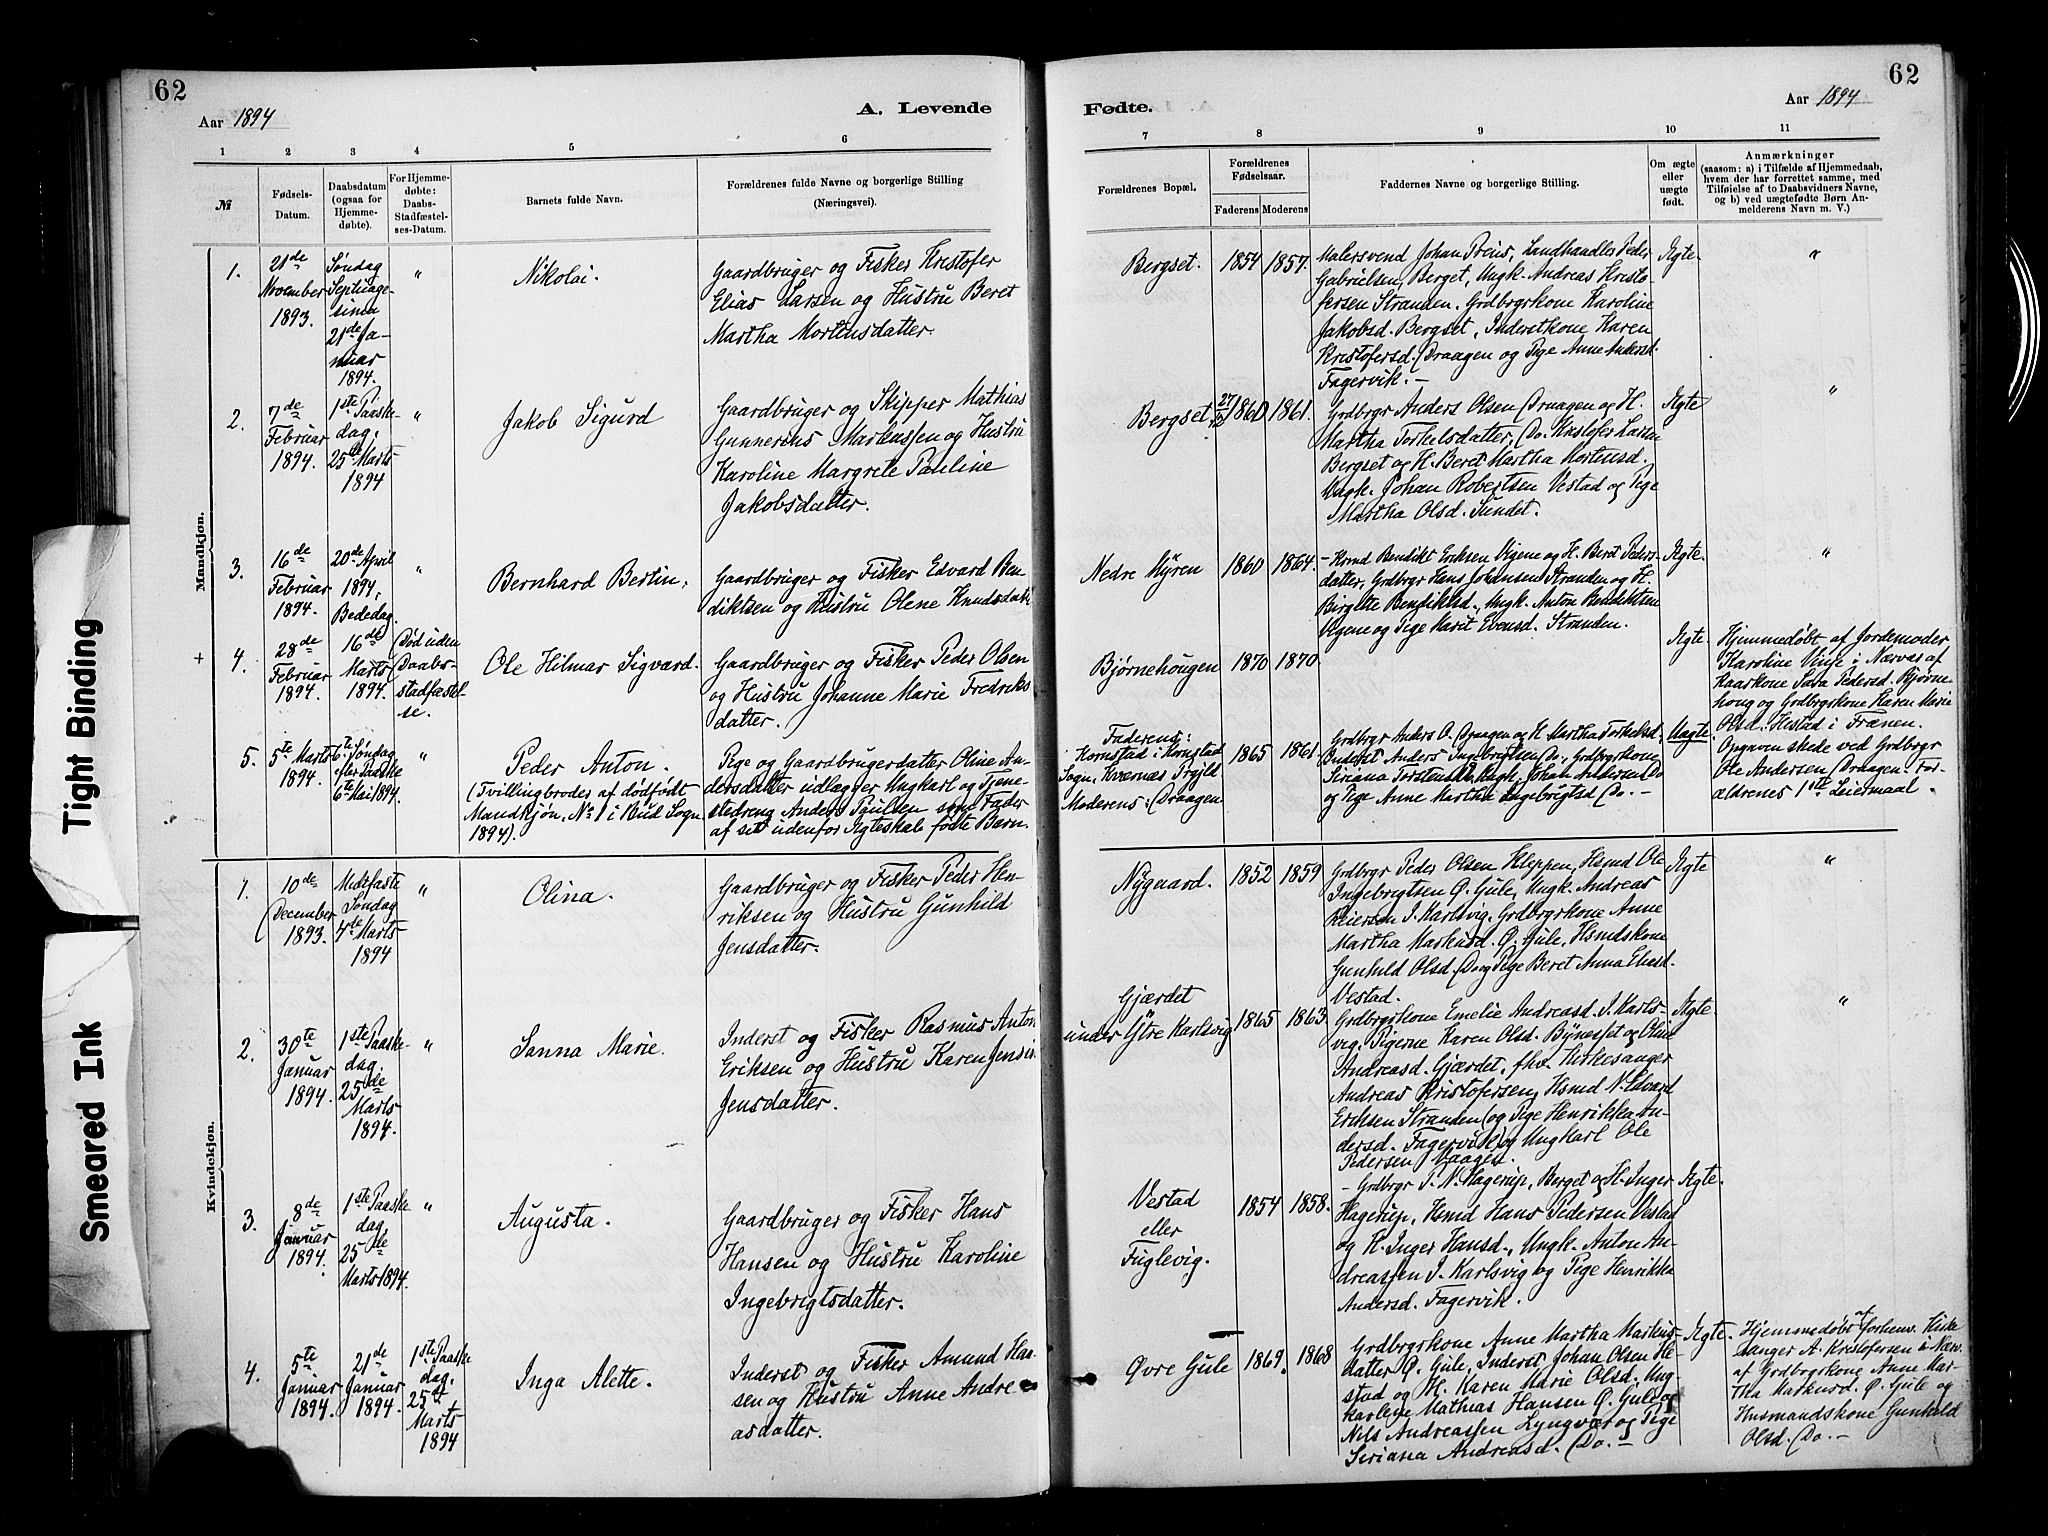 62
Aar 1894
A. Levende
1 2 3 4 5 6
№
Fødsels-
Datum.
Daabsdatum
(ogsaa for
Hjemme-
døbte).
For Hjemme-
døbte:
Daabs-
Stadfæstel-
ses-Datum.
Barnets fulde Navn.
Forældrenes fulde Navne og borgerlige Stilling
(Næringsvei).
Mandkjøn.
1.
21de
November
1893.
Søndag
Septuage-
sima
21de Ja-
nuar
1894.
"
Nikolai.
Gaardbruger og Fisker Kristofer
Elias Larsen og Hustru Beret
Martha Mortensdatter.
2.
7de
Februar
1894.
1ste Paaske-
dag.
25de Marts
1894
"
Jakob Sigurd
Gaardbruger og Skipper Mathias
Gunnerius Markussen og Hustru
Karoline Margrete Pauline
Jakobsdatter.
3.
16de
Februar
1894.
20de April
1894,
Bededag.
"
Bernhard Bertin.
Gaardbruger og Fisker Edvard Ben-
diktsen og Hustru Olene Knudsdatt
+
4.
28de
Februar
1894.
16de
Marts
1894.
Død uden
Daabs-
stadfæstel-
se.
Ole Hilmar Sigvard.
Gaardbruger og Fisker Peder Olsen
og Hustru Johanne Marie Fredriks
datter.
5.
5te Marts
1894.
6te Søndag
efter Paaske
6te Mai 1894.
"
Peder Anton.
(Tvillingbroder af dødfødt
Mandkjøn, No 1 i Bud Sogn
1894).
Pige og Gaardbrugerdatter Oline An-
dersdatter udlægger Ungkarl og Tjene-
stedreng Anders Paulsen som Fader
af sit udenfor Ægteskab fødte Barn.
Kvindekjøn.
1.
10de
December
1893.
Midfaste
Søndag
4de Marts
1894
"
Olina.
Gaardbruger og Fisker Peder Hen-
riksen og Hustru Gunhild
Jensdatter.
2.
30te
Januar
1894.
1ste Paaske-
dag.
25de
Marts
1894.
"
Sanna Marie.
Inderst og Fisker Rasmus Anton
Eriksen og Hustru Karen
Jensdatter.
3.
8de
Januar
1894.
1ste Paaske
dag.
25de
Marts 1894.
"
Augusta.
Gaardbruger og Fisker Hans
Hansen og Hustru Karoline
Ingebrigtsdatter.
4.
5te
Januar
1894.
21de
Januar
1894.
1ste Paaske
dag.
25de
Marts
1894
Inga Alette.
Inderst og Fisker Amund Han-
sen og Hustru Anne Andre-
asdatter.
62
Fødte.
Aar 1894
7 8 9 10 11
Forældrenes Bopæl.
Forældrenes
Fødselsaar.
Faderens. Moderens.
Faddernes Navne og borgerlige Stilling.
Om ægte
eller
uægte
født.
Anmærkninger
(saasom: a) i Tilfælde af Hjemmedaab,
hvem der har forrettet samme, med
Tilføielse af to Daabsvidners Navne,
og b) ved uægtefødte Børn An-
melderens Navn m. V.)
Bergset. 1854 1857.
Malersvend Johan Preus, Landhandler Peder
Gabrielsen, Berget, Ungk. Andreas Kristo-
fersen Stranden. Grdbrgrkone Karoline
Jakobsd. Bergset, Inderstkone Karen
Kristofersd. Draagen og Pige Anne Andersd.
Fagervik. -
Ægte.
"
Bergset 27/12 1860 1861.
Grdbrgr Anders Olsen Draagen og H.
Martha Torkelsdatter, Do. Kristofer Larsen
Bergset og H. Beret Martha Mortensd.
Ungk. Johan Robertsen Vestad og Pige
Martha Olsd. Sundet.
Ægte
"
Nedre Myren 1860 1864.
- Kmd Bendikt Eriksen Vigene og H. Beret Peders-
datter, Grdbrgr Hans Johansen Stranden og H.
Birgitte Bendiktsd., Ungk. Anton Bendiktsen
Vigene og Pige Marit Evensd. Stranden.
Ægte.
"
Bjørnehougen 1870 1870
Ægte
Hjemmedøbt af Jordemoder
Karoline i Nærvær af
Kaarkone Sara Pedersd. Bjørne-
houg og Grdbrgrkone Karen Marie
Olsd. Hestad i Frænen.
Faderens:
Kornstad i Kornstad
Sogn, Kværnes Prgjld
Moderens: Draagen
1865 1861.
Grdbrgr Anders O. Draagen og H. Martha Torkelsd.,
Inderst Anders Ingebrigtsen Do, Grdbrgrkone
Siriana Torstensd. Ungk. Johan Andersen Do
og Pige Anne Martha Ingebrigtsd Do. -
Uægte.
Opgaven skede ved Grdbrgr
Ole Andersen Draagen. For-
ældrenes 1ste Leiermaal.
Nygaard. 1852 1859
Grdbrgr Peder Olsen Kleppen, Hsmd Ole
Ingebrigtsen Ø. Gule, Ungk. Andreas
Reiersen I. Karlsvig. Grdbrgrkone Anne
Martha Markusd. Ø. Gule, Hsmdskone
Gunhild Olsd. Do og Pige Beret Anna Eliasd.
Vestad.
Ægte
"
Gjærdet
under Ytre Karlsvig 1865 1863
Grdbrgrkone Emelie Andreasd. I. Karls-
vig. Pigerne Karen Olsd. Bynesset og Oline
Andreasd. Gjærdet, fhv. Kirkesanger
Andreas Kristofersen, Hsmd N. Edvard
Eriksen Stranden og Pige Henrikka An-
dersd. Fagervik og Ungkarl Ole
Pedersen Vaagen.
Ægte.
"
Vestad
eller
Fuglevig.
1854 1858.
- Grdbrgr P. N. Hagerup, Berget og H. Inger
Hagerup, Hsmd Hans Pedersen Vestad
og H. Inger Hansd., Ungk. Anton An-
dreassen I. Karlsvig og Pige Henrikka
Andersd. Fagervik.
Ægte.
Øvre Gule 1869. 1868
Grdbrgrkone Anne Martha Markus-
datter Ø. Gule, Inderst Johan Olsen He-
stad og H. Karen Marie Olsd. Ung-
karlene Mathias Hansen Ø. Gule og
Nils Andreassen Lyngvær og Pige
Siriana Andreasd. Do. -
Ægte.
Hjemmedøbt af forhenv. Kirke
sanger A. Kristofersen i Nærv.
af Grdbrgrkone Anne Mar-
tha Markusd. Ø. Gule og
Husmandskone Gunhild
Olsd. Do. -
Tight Binding
Smeared Ink